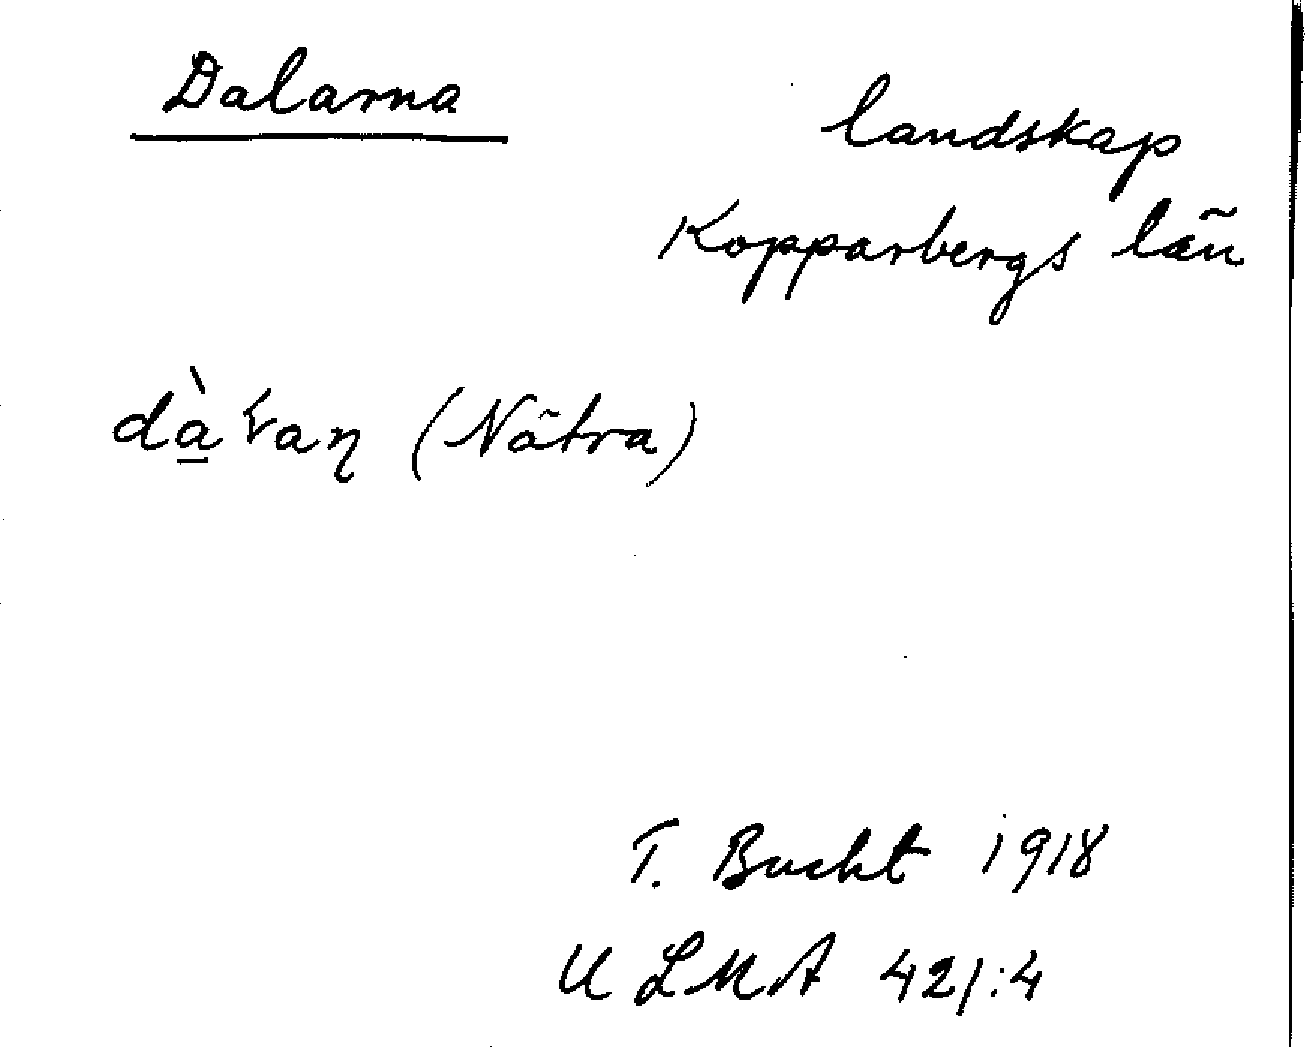 Dalarna
landskap
Kopparbergs län
(Nätra)
T. Bucht 1918
ULMA 421:4